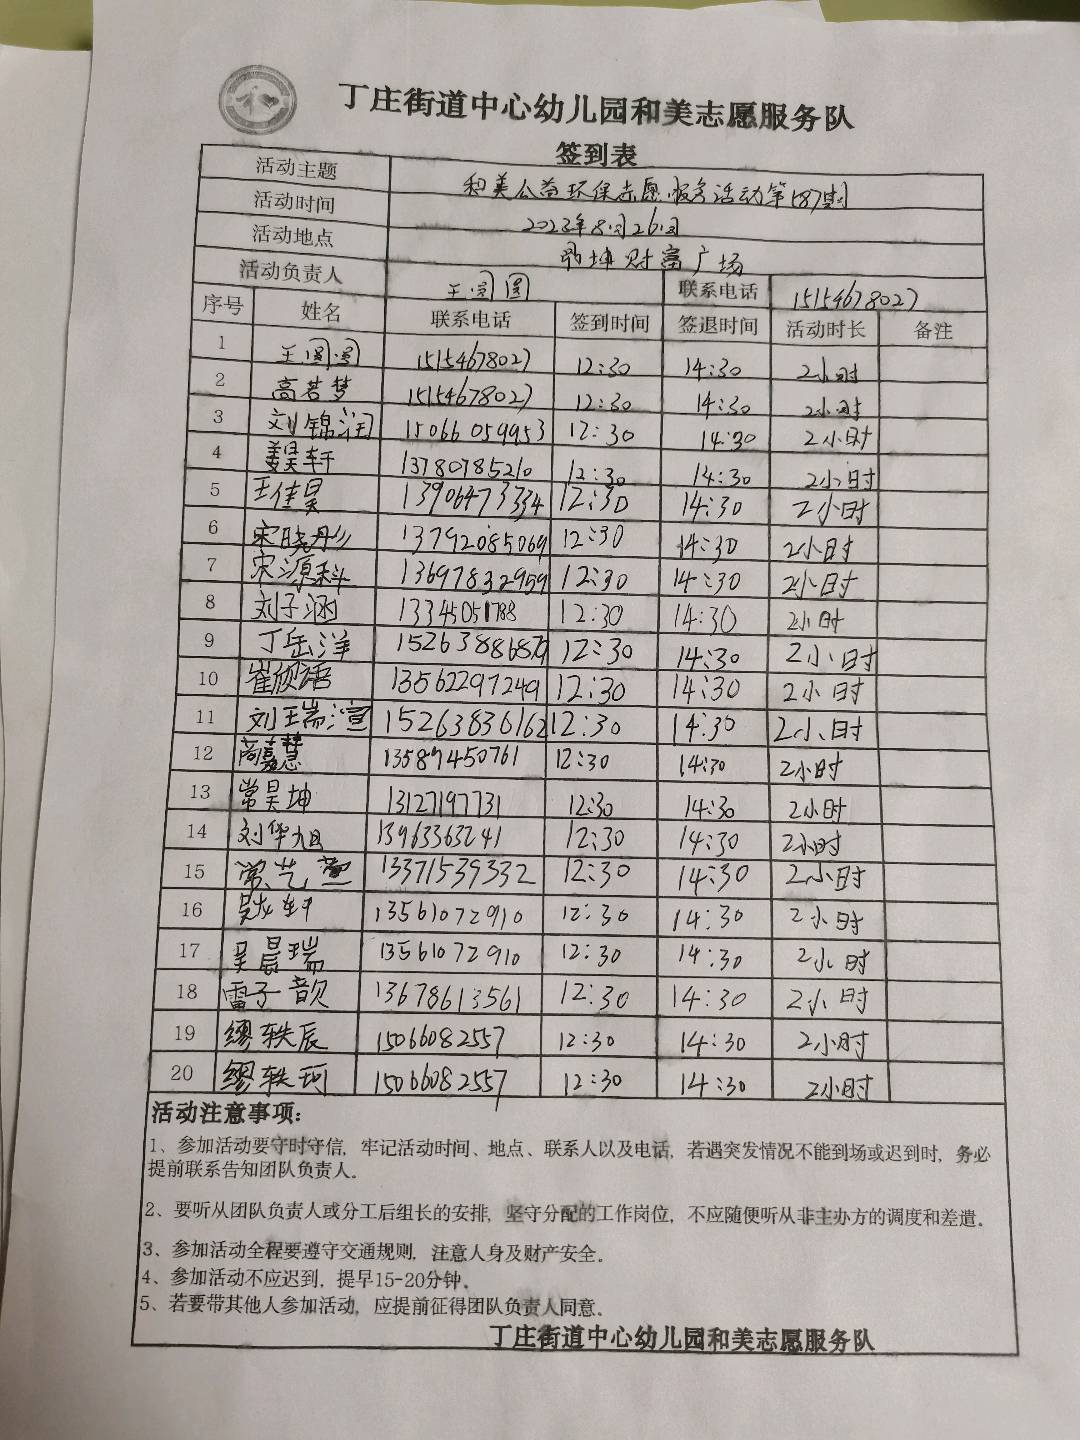 丁庄街道中心幼儿园和美志愿服务队
签到表
活动主题 和美公益环保志愿服务活动第187期
活动时间 2023年8月26日
活动地点 乾坤财富广场
活动负责人 王圆圆 联系电话 15154678027
序号 姓名 联系电话 签到时间 签退时间 活动时长 备注
1 王圆圆 15154678027 12:30 14:30 2小时
2 高若梦 15154678027 12:30 14:30 2小时
3 刘锦润 15066059953 12:30 14:30 2小时
4 姜昊轩 13780785210 12:30 14:30 2小时
5 王佳昊 13906473334 12:30 14:30 2小时
6 宋晓彤 13792085069 12:30 14:30 2小时
7 宋源科 13697832959 12:30 14:30 2小时
8 刘子涵 13345051788 12:30 14:30 2小时
9 丁岳洋 12:30 14:30 2小时
10 崔欣语 13562297249 12:30 14:30 2小时
11 刘玉瑞瑄 15263836162 12:30 14:30 2小时
12 商嘉慧 13589450761 12:30 14:30 2小时
13 常昊坤 13127197731 12:30 14:30 2小时
14 刘华旭 13963363241 12:30 14:30 2小时
15 常艺萱 13371539332 12:30 14:30 2小时
16 13561072910 12:30 14:30 2小时
17 吴晨瑞 13561072910 12:30 14:30 2小时
18 雷子韵 13678613561 12:30 14:30 2小时
19 缪轶辰 15066082557 12:30 14:30 2小时
20 缪轶珂 15066082557 12:30 14:30 2小时
活动注意事项：
1、参加活动要守时守信，牢记活动时间、地点、联系人以及电话，若遇突发情况不能到场或迟到时，务必
提前联系告知团队负责人。
2、要听从团队负责人或分工后组长的安排，坚守分配的工作岗位，不应随便听从非主办方的调度和差遣。
3、参加活动全程要遵守交通规则，注意人身及财产安全。
4、参加活动不应迟到，提早15-20分钟。
5、若要带其他人参加活动，应提前征得团队负责人同意。
丁庄街道中心幼儿园和美志愿服务队